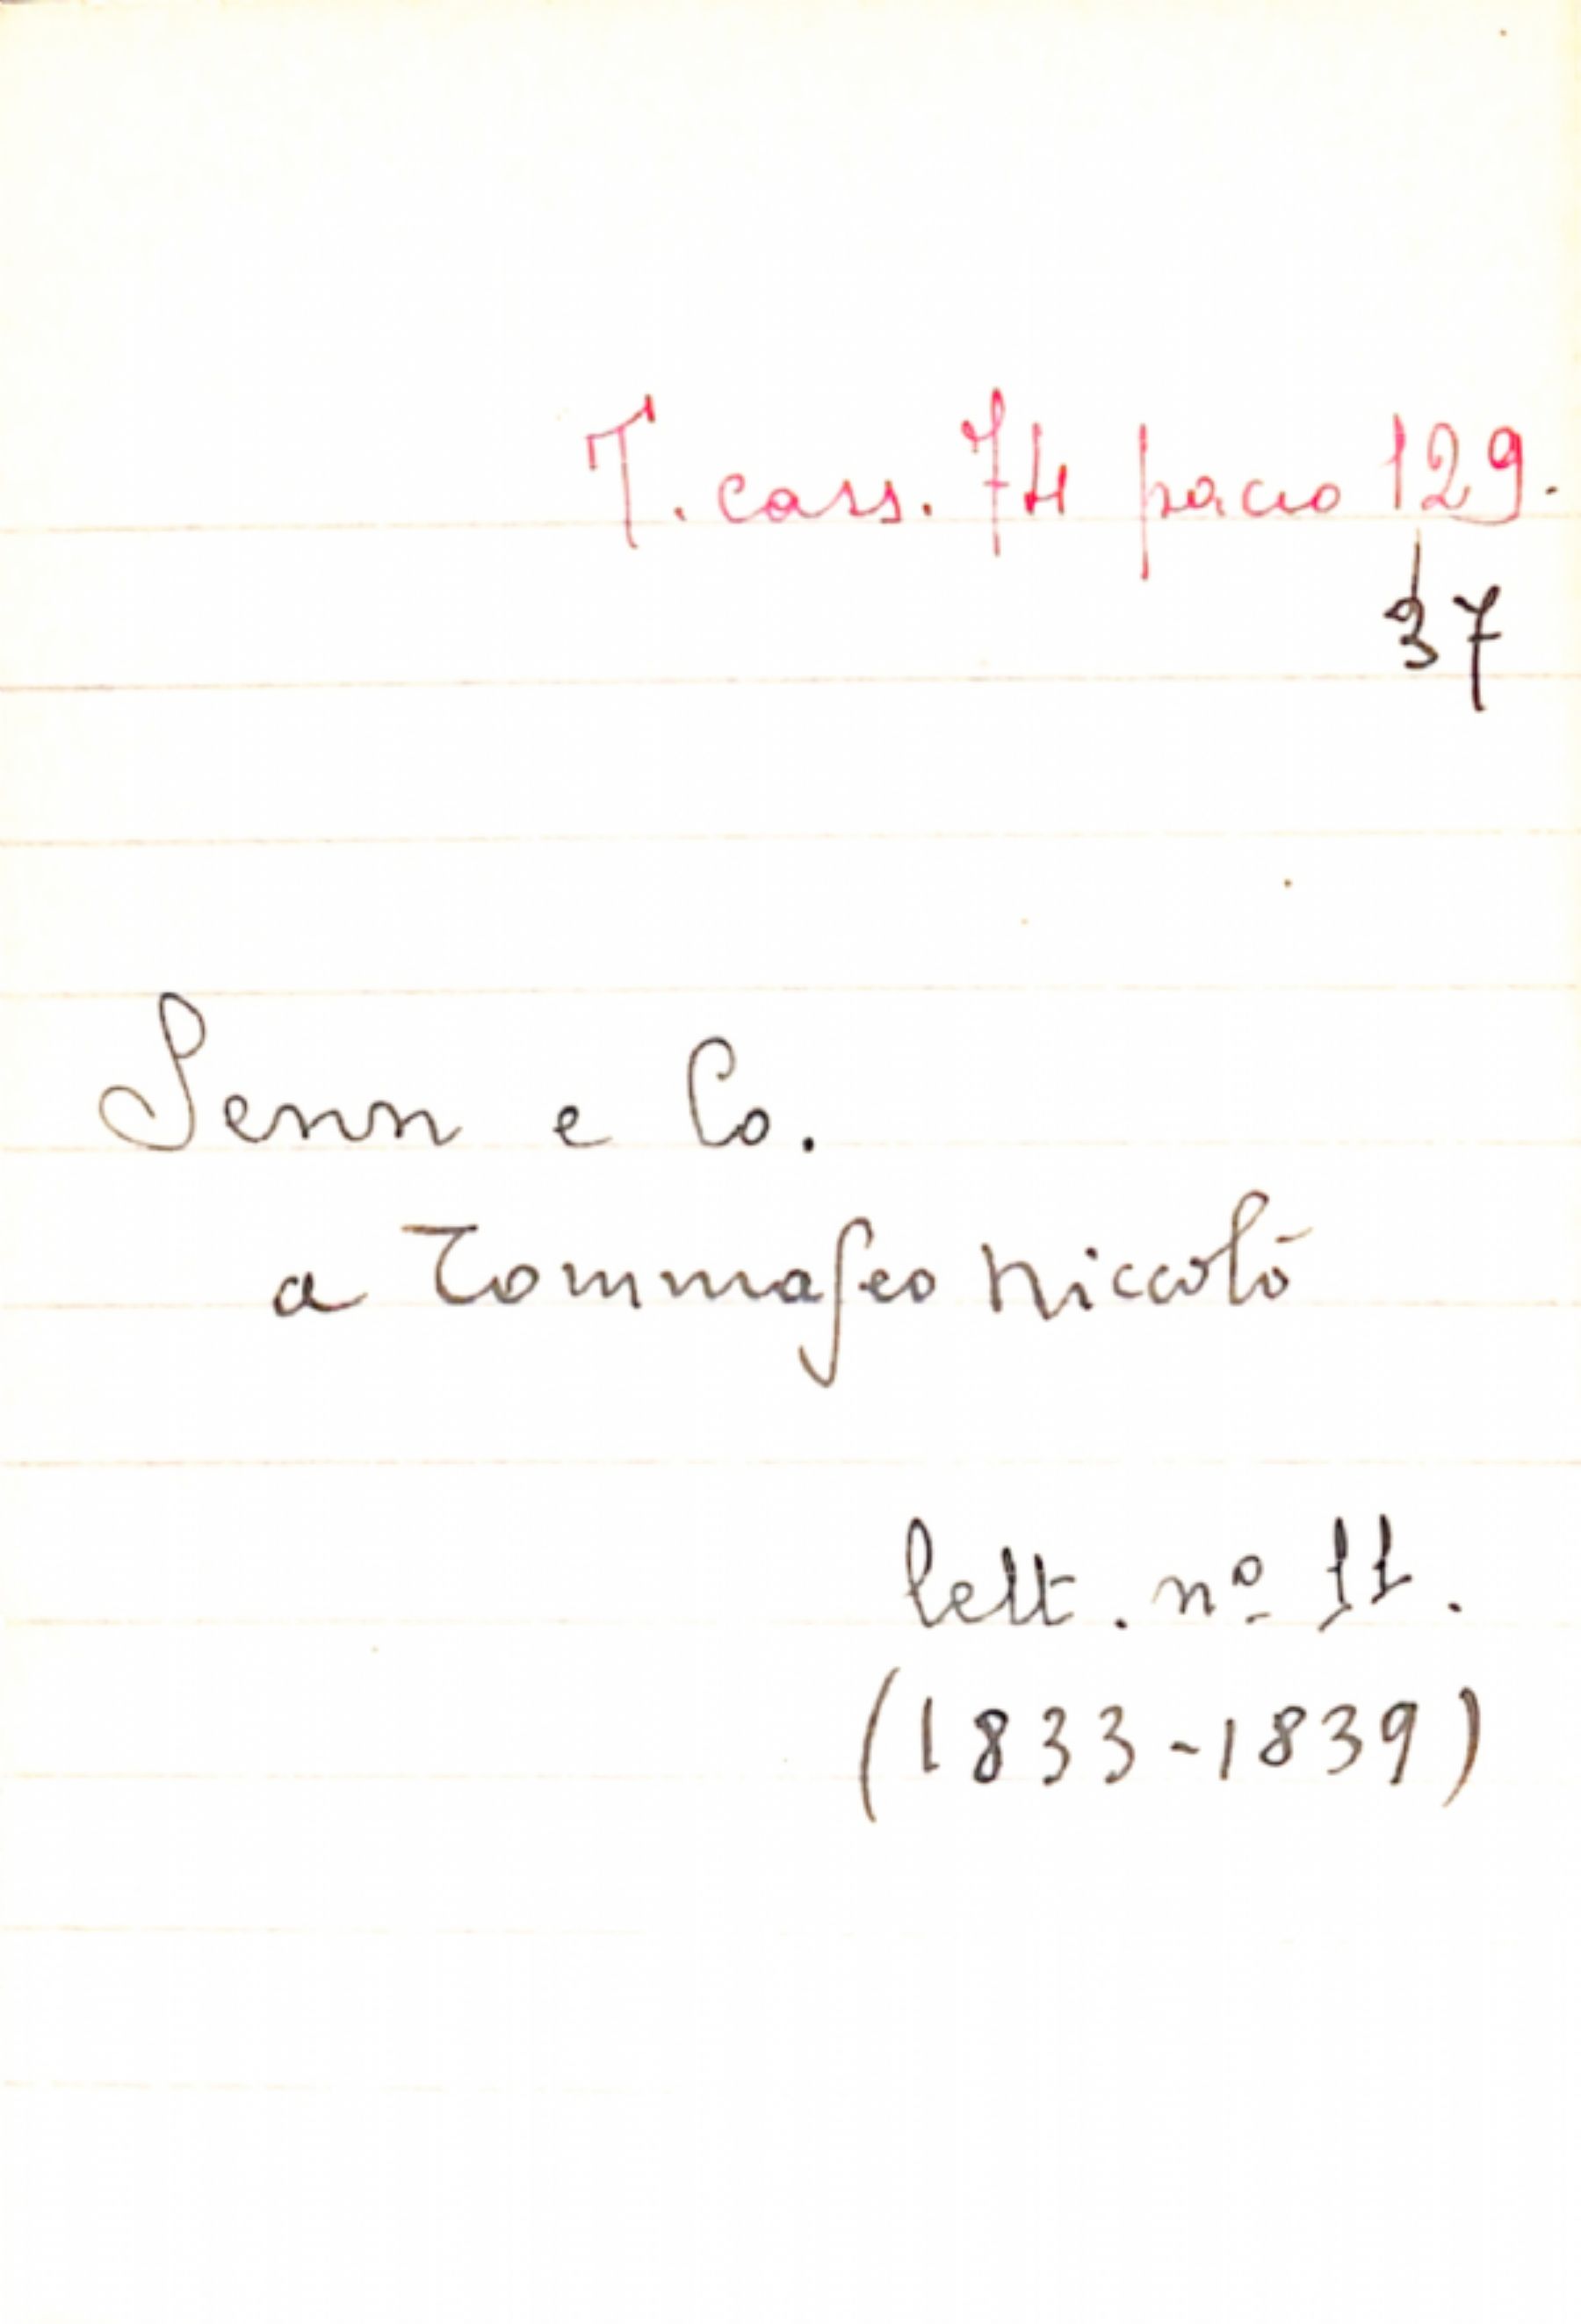 T. cass. 74 pacco 129.
37
Senn e Co.
a Tommaseo Niccolò
lett. nº 11.
(1833-1839)